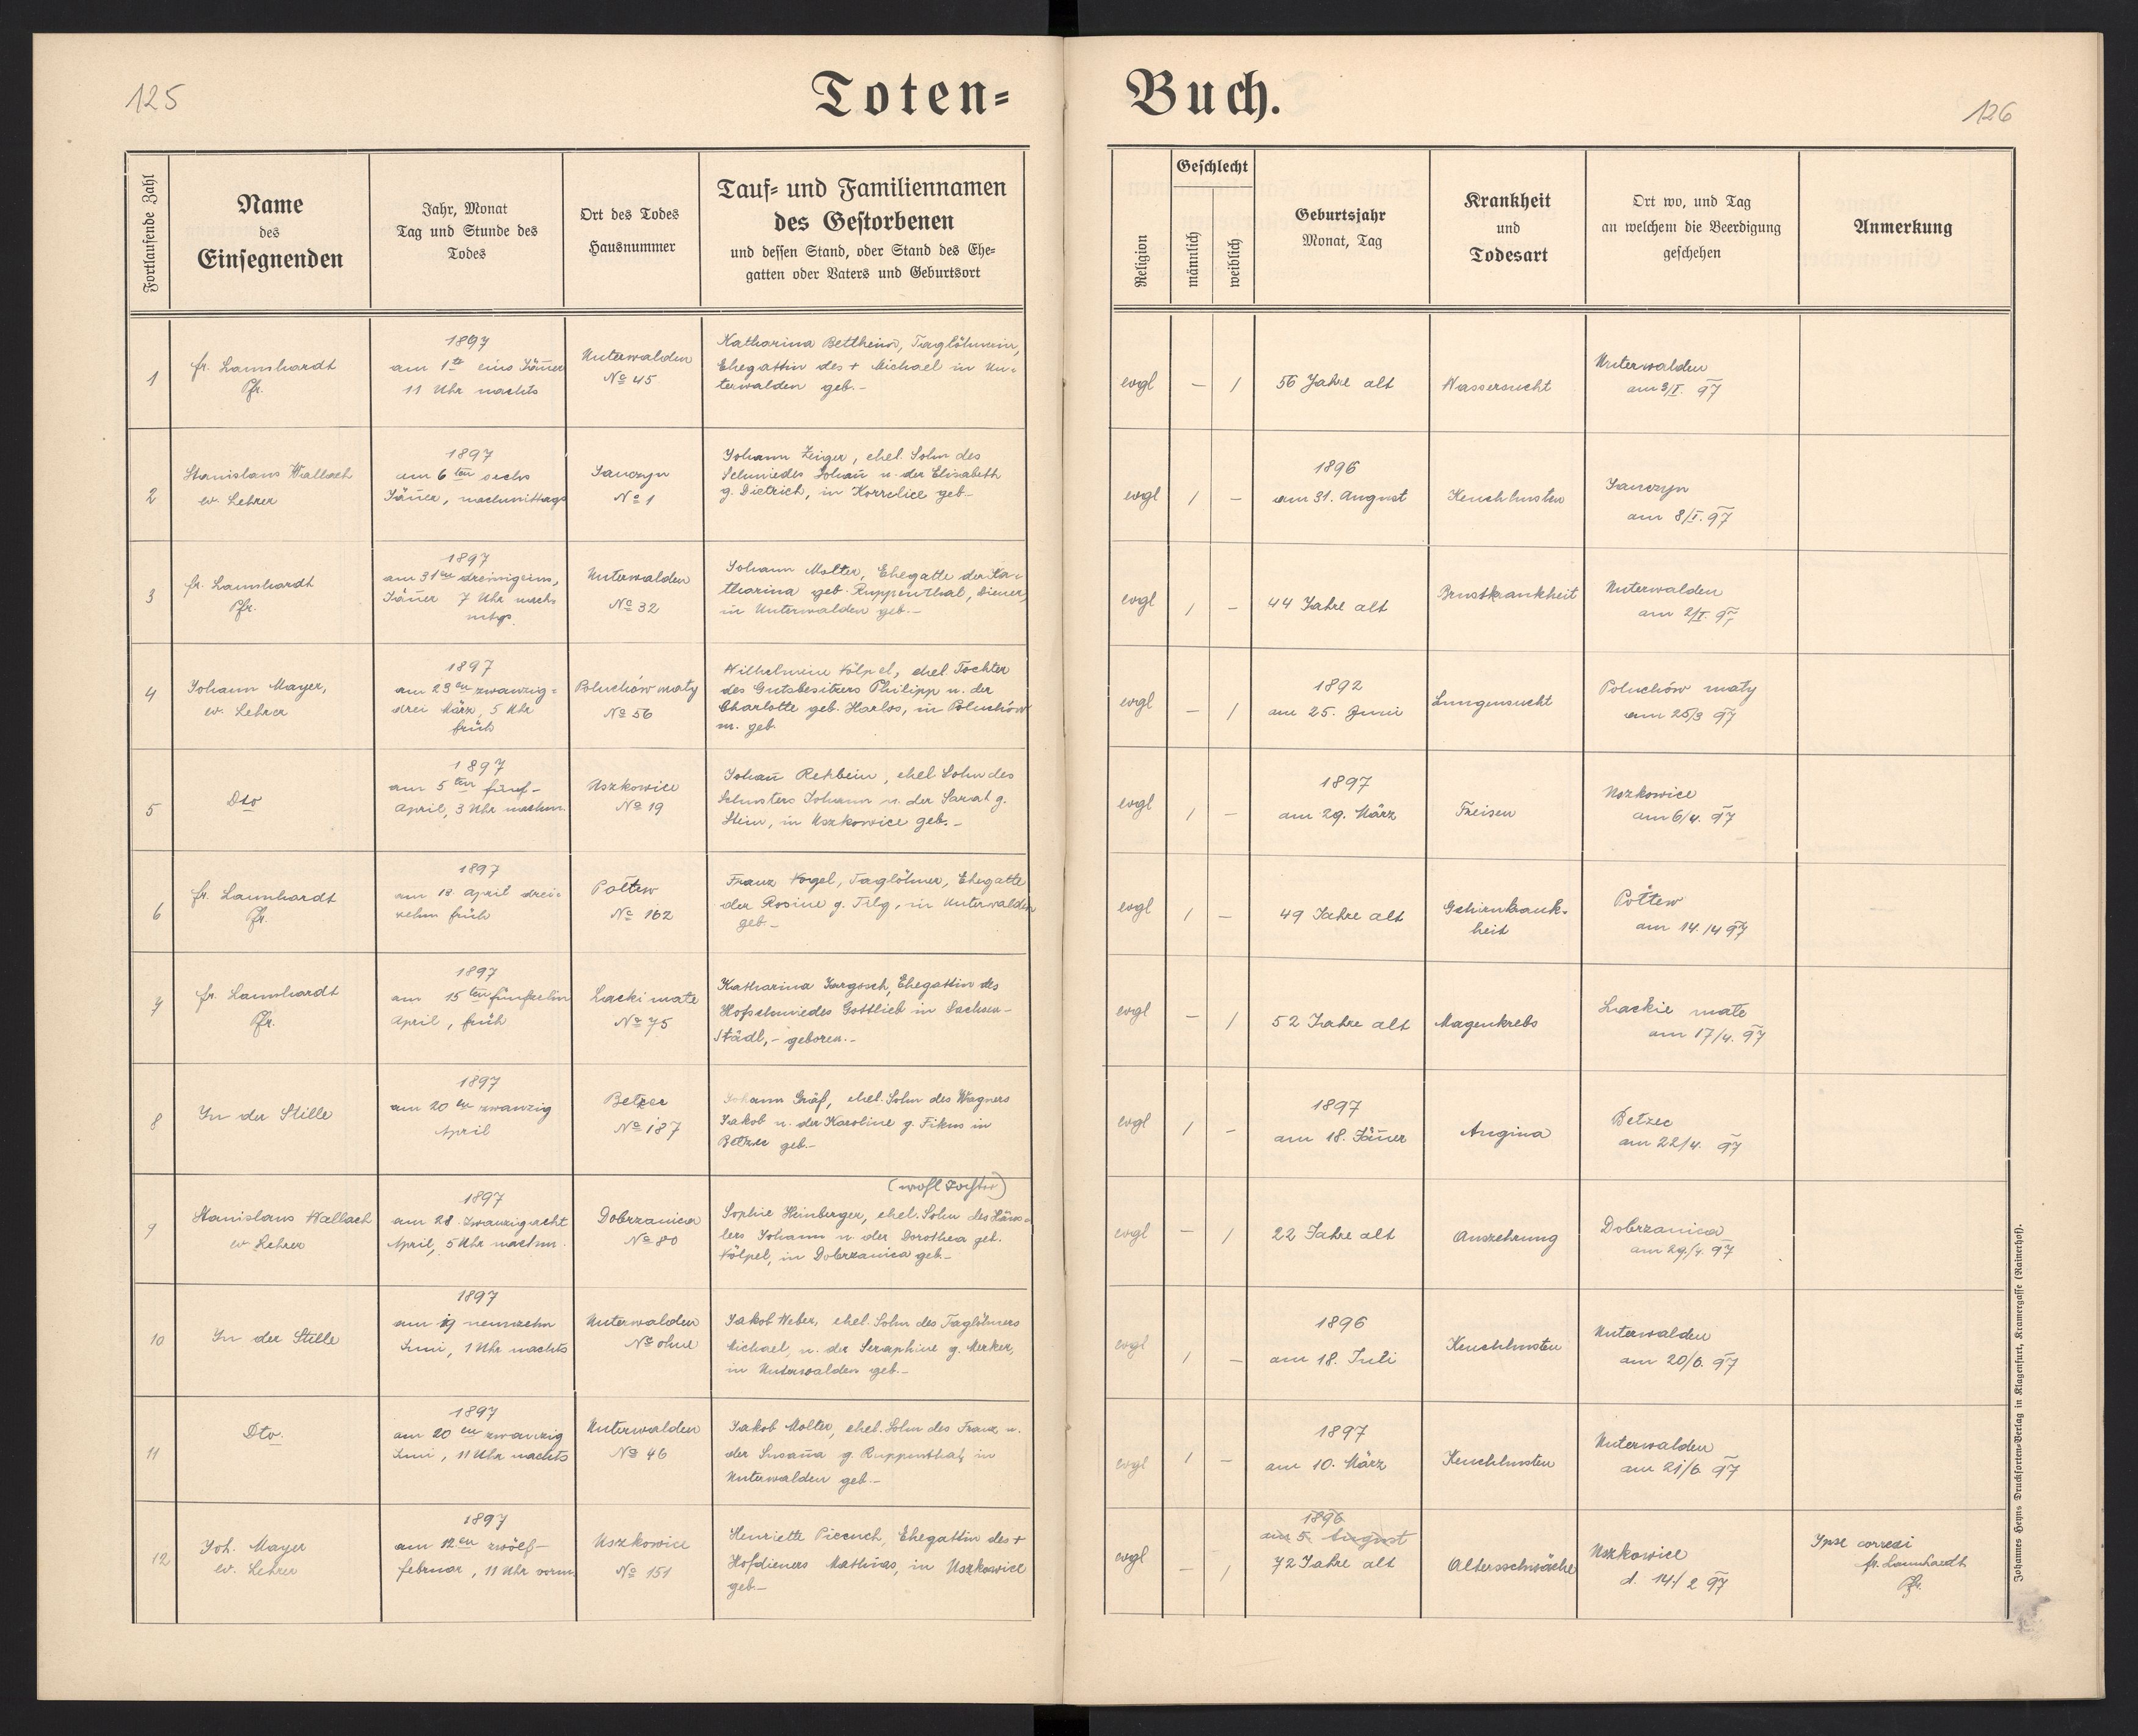 125
Toten=
Buch.
126
Fortlaufende Zahl
Name
des
Einsegnenden
Jahr, Monat
Tag und Stunde des
Todes
Ort des Todes
Hausnummer
Tauf= und Familiennamen
des Gestorbenen
und dessen Stand, oder Stand des Ehe=
gatten oder Vaters und Geburtsort
Religion
Geschlecht
männlich
weiblich
Geburtsjahr
Monat, Tag
Krankheit
und
Todesart
Ort wo, und Tag
an welchem die Beerdigung
geschehen
Anmerkung
1
fr. Launhardt
Pfr.
1897
am 1te eins Jäner
11 Uhr nachts
Unterwalden
No 45
Katharina Bettheim, Taglöhnerin,
Ehegattin des + Michael in Un-
terwalden geb.-
evgl
–
1
56 Jahre alt
Wassersucht
Unterwalden
am 3/I. 97
2
Stanislaus Wallach
ev. Lehrer
1897
am 6ten sechs
Jäner, nachmittags
Janczyn
No 1
Johann Zeiger, ehel. Sohn des
Schmiedes Johañ u. der Elisabeth
g. Dietrich, in Korrelice geb-
evgl
1
–
1896
am 31. August
Keuchhusten
Janczyn
am 8/I. 97
3
fr. Launhardt
Pfr.
1897
am 31en dreissigeins,
Jäner 7 Uhr nach-
mtgs.
Unterwalden
No 32
Johann Molter, Ehegatte der Ka-
tharina geb. Ruppenthal, Diener,
in Unterwalden geb.-
evgl
1
–
44 Jahre alt
Brustkrankheit
Unterwalden
am 2/I. 97
4
Johann Mayer,
ev. Lehrer
1897
am 23en zwanzig=
drei März, 5 Uhr
früh
Poluchów maty
No 56
Wilhelmine Kölpel, ehel. Tochter
des Gutsbesitzers Philipp u. der
Charlotte geb. Harlos, in Poluchów
m. geb.
evgl
–
1
1892
am 25. Juni
Lungensucht
Poluchów maty
am 25/3 97
5
Dto
1897
am 5ten fünf-
April, 3 Uhr nachm.
Uszkowice
No 19
Johañ Rehbein, ehel Sohn des
Schusters Johann u. der Sarah g.
Stein, in Uszkowice geb.-
evgl
1
–
1897
am 29. März
Freisen
Uszkowice
am 6/4. 97
6
fr. Launhardt
Pfr.
1897
am 13. April drei-
zehn früh
Połtew
No 162
Franz Vogel, Taglöhner, Ehegatte
der Rosine g. Filg, in Unterwalden
geb-
evgl
1
–
49 Jahre alt
Gehirnkrank-
heit
Połtew
am 14./4 97
7
fr. Launhardt
Pfr.
1897
am 15ten fünfzehn
April, früh
Lacki mate
No 75
Katharina Jargosch, Ehegattin des
Hofschmiedes Gottlieb in Sachsen-
Städl,- geboren.-
evgl
–
1
52 Jahre alt
Magenkrebs
Lackie mate
am 17/4. 97
8
In der Stille
1897
am 20en zwanzig
April
Betzec
No 187
Johann Gräf, ehel. Sohn des Wagners
Jakob u. der Karoline g. Fikus in
Betzec geb.-
evgl
1
–
1897
am 18. Jäner
Angina
Betzec
am 22/4. 97
9
Stanislaus Wallach
ev Lehrer
1897
am 28. zwanzigacht
April, 5 Uhr nachm.
Dobrzanica
No 80
(wohl Tochter)
Sophie Heinberger, ehel. Sohn des Häus-
lers Johann u der Dorothea geb.
Kölpel, in Dobrzanica geb.-
evgl
–
1
22 Jahre alt
Auszehrung
Dobrzanica
am 29./4. 97
10
In der Stille
1897
am 19 neunzehn
Juni, 1 Uhr nachts
Unterwalden
No ohne
Jakob Weber, ehel. Sohn des Taglöhners
Michael, u. der Seraphine g. Merker,
in Unterwalden geb.-
evgl
1
–
1896
am 18. Juli
Keuchhusten
Unterwalden
am 20/6. 97
11
Dto.
1897
am 20en zwanzig
Juni, 11 Uhr nachts
Unterwalden
No 46
Jakob Molter, ehel. Sohn des Franz u.
der Susaña g. Ruppenthal, in
Unterwalden geb.-
evgl
1
–
1897
am 10. März
Keuchhusten
Unterwalden
am 21/6 97
12
Joh. Mayer
ev. Lehrer
1897
am 12en zwölf-
februar, 11 Uhr vorm.
Uszkowice
No 151
Henriette Piecuch, Ehegattin des +
Hofdieners Mathias, in Uszkowice
geb-
evgl
–
1
1896
am 5. August
72 Jahre alt
Altersschwäche
Uszkowice
d. 14./2 97
Ipse correxi
fr. Launhardt
Pfr.
Johannes Heyns Drucksorten=Verlag in Klagenfurt, Kramergasse (Rainerhof).